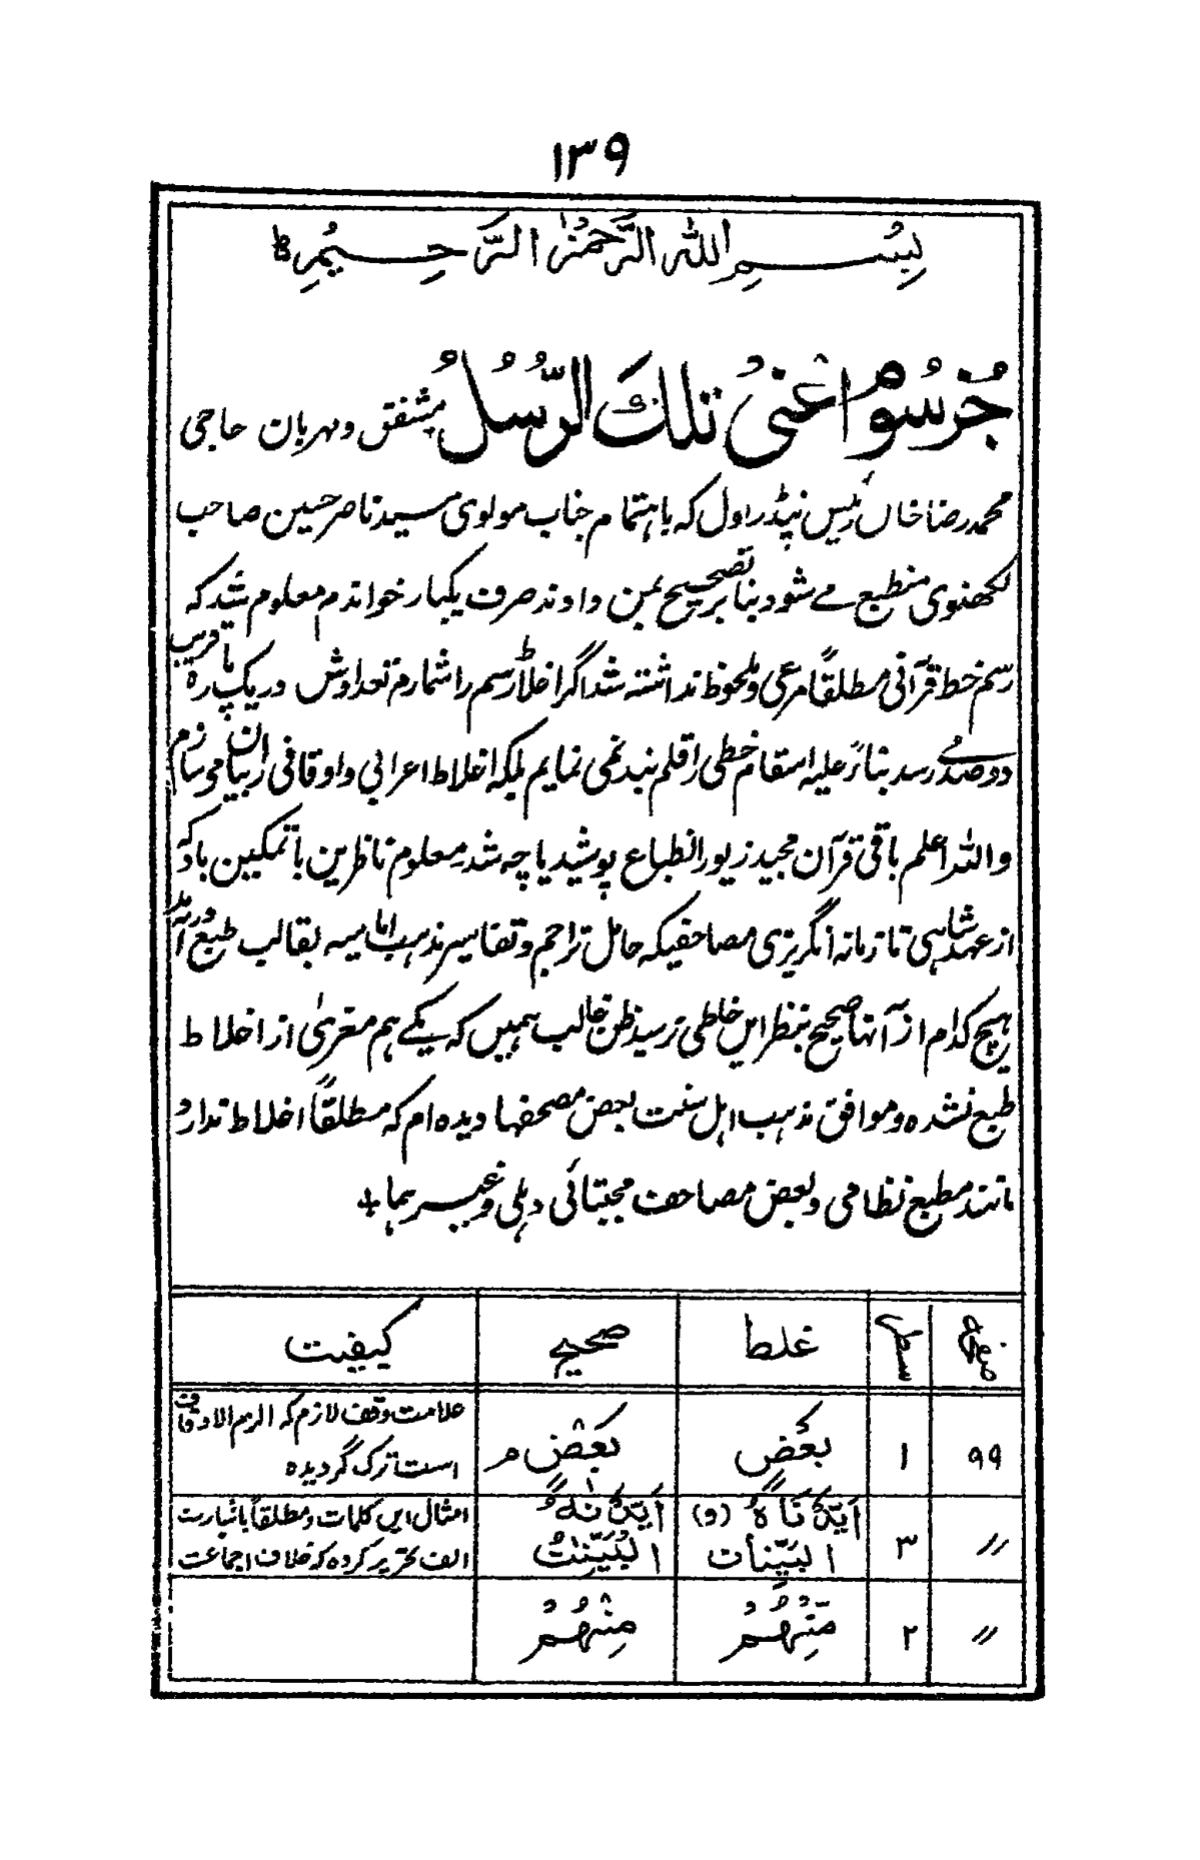 ۱۳۹
بِسْمِ اللهِ الرَّحْمٰنِ الرَّحِيْمِ ط
جُزسُوم اعنی تلك الرُّسُلُ مشفق و مہربان حاجی
محمد رضا خاں رئیس پنڈراول کہ باہتمام جناب مولوی سید ناصر حسین صاحب
لکھنوی منطبع مے شود بنا بر تصحیح بمن دادند صرف یکبار خواندم معلوم شد کہ
رسم خط قرآنی مطلقاً مرعی و ملحوظ نداشتہ شد اگر اغلاط رسم را شمارم تعدادش در یک پارہ تا قریب
دو صدے رسد بناءً علیہ اسقام خطی را قلم بند نمی نمایم بلکہ اغلاط اعرابی و اوقافی را بیان می سازم
واللہ اعلم باقی قرآن مجید زیور انطباع پوشید یا چہ شد معلوم ناظرین با تمکین باد کہ
از عہد شاہی تا زمانہ انگریزی مصاحفیکہ حامل تراجم و تفاسیر مذہب امامیہ بقالب طبع در آمد
ہیچ کدام از آنہا صحیح بنظر ایں خاطی نرسید ظن غالب ہمیں کہ یکے ہم معریٰ از اغلاط
طبع نشدہ و موافق مذہب اہل سنت بعض مصحفہا دیدہ ام کہ مطلقاً اغلاط ندارد
مانند مطبع نظامی و بعض مصاحف مجتبائی دہلی وغیرہما
صفحہ سطر غلط صحیح کیفیت
۹۹ ۱ بعض بَعْضٍ م علامت وقف لازم کہ الزم الاوقاف
است ترک گردیدہ
〃 ۳ اَيَّدْنَاهُ (و) البَيِّنَات اَيَّدْنٰهُ البَيِّنٰتِ امثال ایں کلمات و مطلقاً باثبات
الف تحریر کردہ کہ خلاف اجماعت
〃 ۲ مِّنْهُمْ مِنْهُمْ